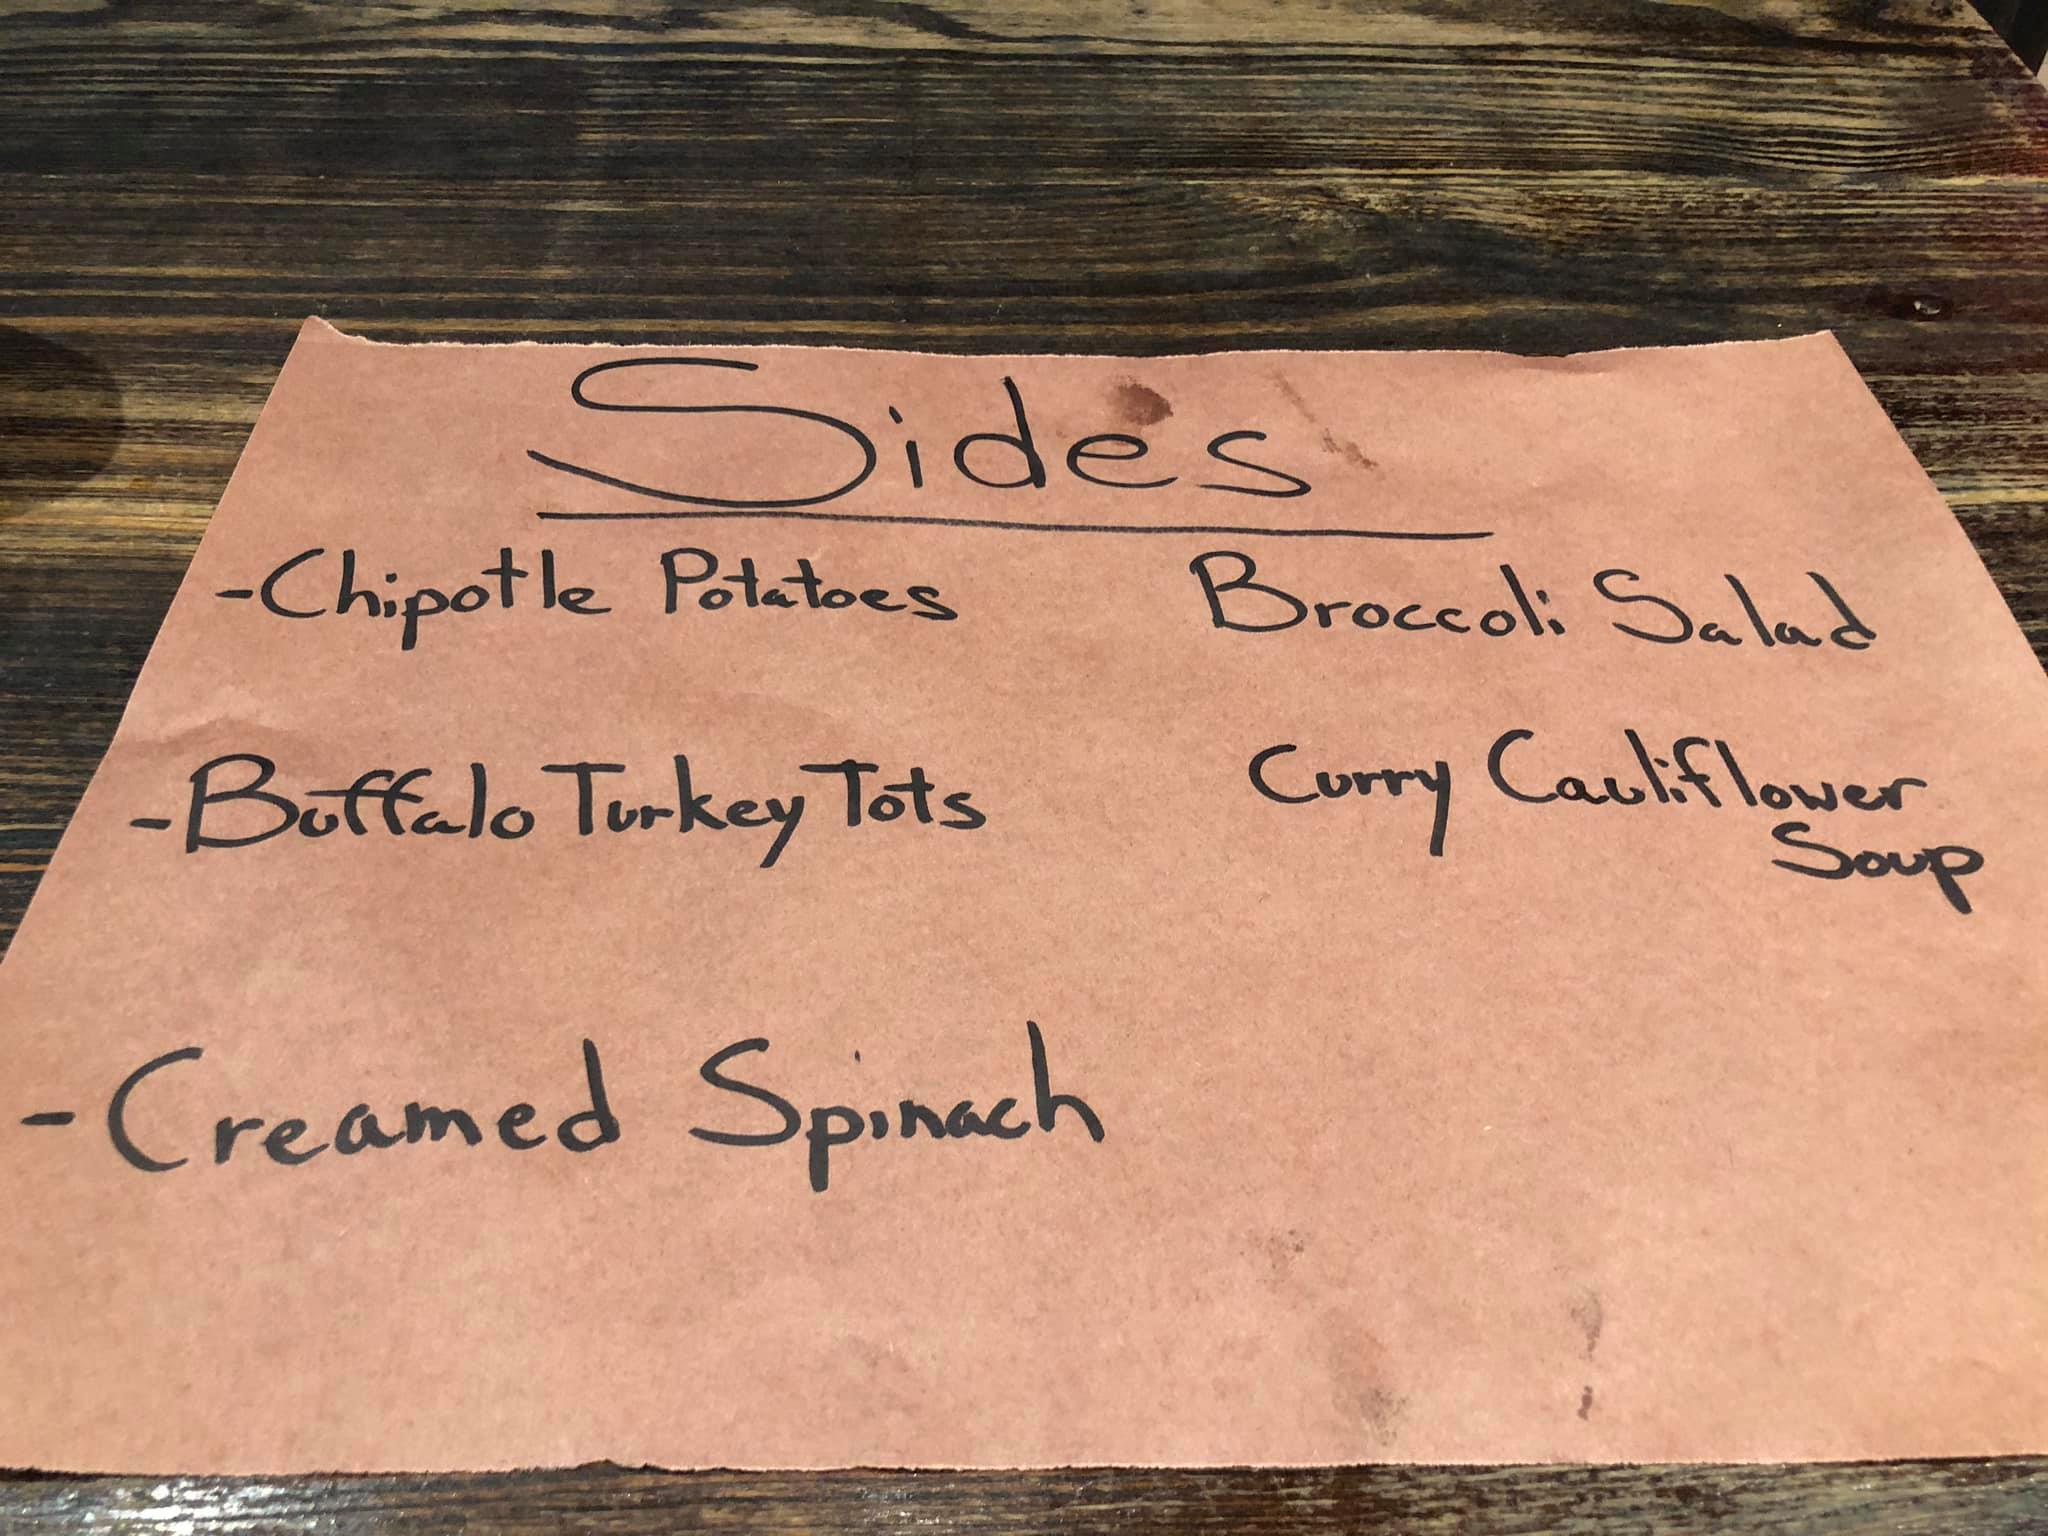 Sides
-Chipotle Potatoes
Broccoli Salad
-Buffalo Turkey Tots
Curry Cauliflower
Soup
-Creamed Spinach